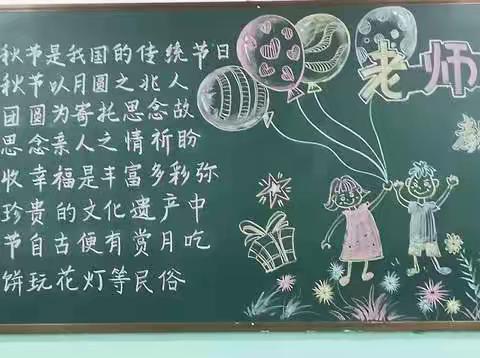 秋节是我国的传统节日
秋节以月圆之兆人
团圆为寄托思念故
思念亲人之情祈盼
收幸福是丰富多彩弥
珍贵的文化遗产中
节自古便有赏月吃
饼玩花灯等民俗
老师